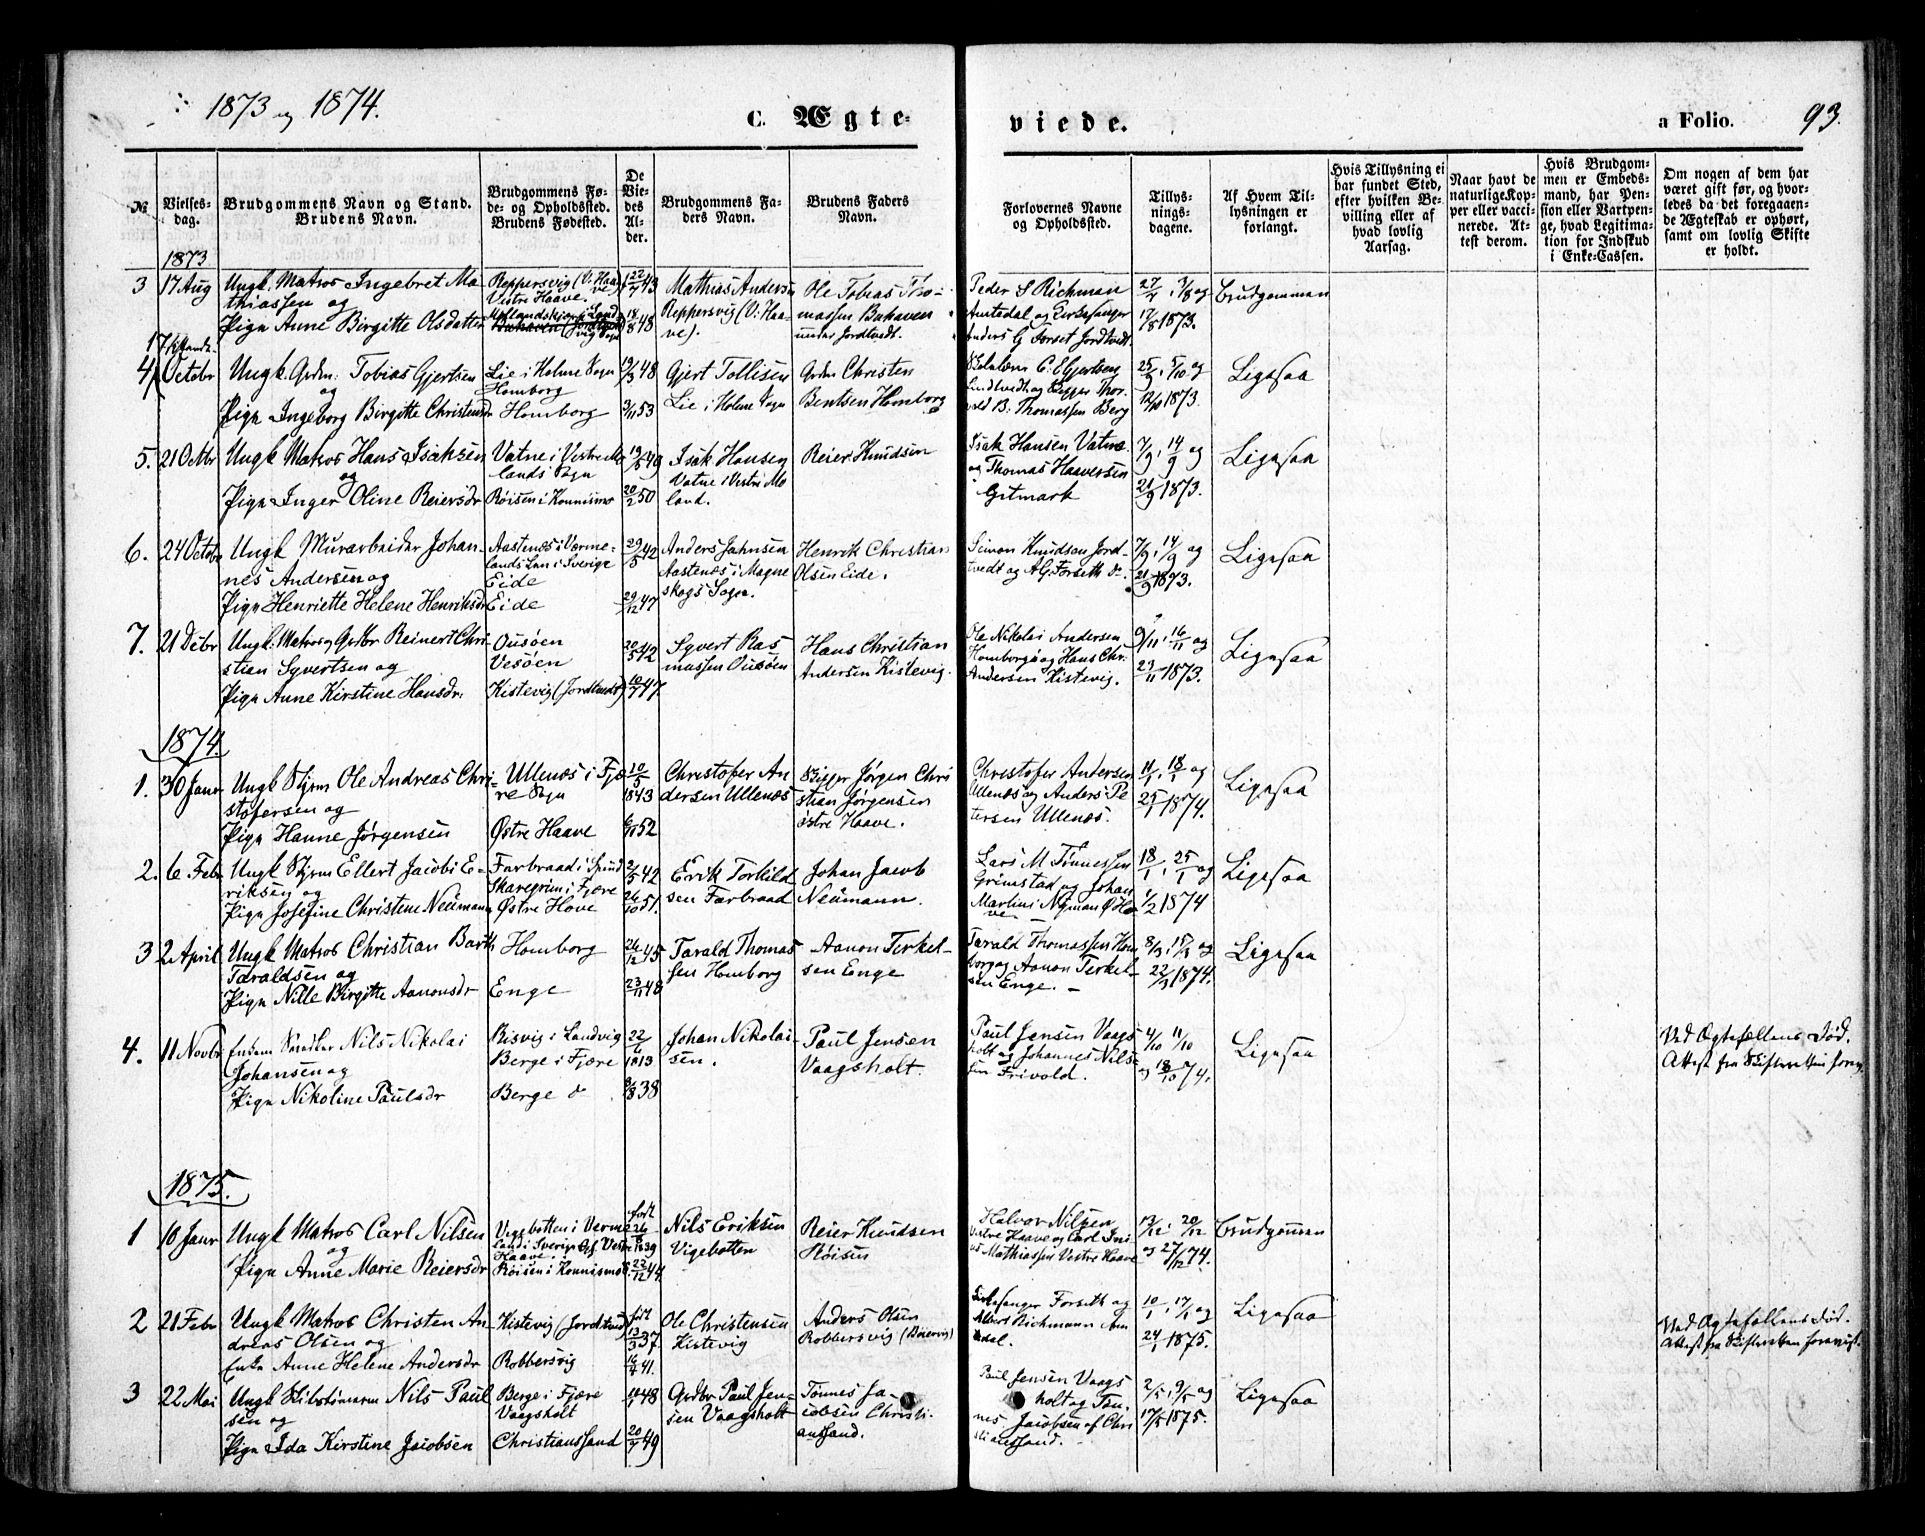 1873 og 1874.
C. Ægte-
viede.
a Folio. 93.
№
Vielses-
dag.
Brudgommens Navn og Stand.
Brudens Navn.
Brudgommens Fø-
de- og Opholdssted.
Brudens Fødested.
De
Vie-
des
Al-
der.
Brudgommens Fa-
ders Navn.
Brudens Faders
Navn.
Forlovernes Navne
og Opholdssted.
Tillys-
nings-
dagene.
Af Hvem Til-
lysningen er
forlangt.
Hvis Tillysning ei
har fundet Sted,
efter hvilken Be-
villing eller af
hvad lovlig
Aarsag.
Naar havt de
naturlige Kop-
per eller vacci-
nerede. At-
test derom.
Hvis Brudgom-
men er Embeds-
mand, har Pen-
sion eller Vartpen-
ge, hvad Legitima-
tion for Indskud
i Enke-Cassen.
Om nogen af dem har
været gift før, og hvor-
ledes da det foregaaen-
de Ægteskab er ophørt,
samt om lovlig Skifte
er holdt.
1873
3 17 Aug Ungk. Matros Ingebret Ma
thiassen og
Pige Anne Birgitte Olsdatter
Reppersvig (V: Haa
ve)
Vestre Haave.
22/7 43
18/8 48
Mathias Andersen
Reppersvig (V: Haa-
ve).
Ole Tobias Tho-
massen Buhaven
under Jordtvedt.
Peder S Richman
Amtedal og Kirkesanger
Anders G Forset Jordtvedt.
27/7, 3/8 og
17/8 1873.
Brudgommen
4 17 Octobr Ungk. Grdm. Tobias Gjertsen
og
Pige Ingeborg Birgitte Christensdr
Lie i Holme Sogn
Homborg
Homborg
19/3 48
3/11 53
Gjert Tollisen
Lie i Holme Sogn
Grdm Christen
Bentsen Homborg
C. E. Gjertsen
Lindtvedt og Skipper Thor
vald B. Thomassen Berg
25/9, 5/10 og
12/10 1873.
Ligesaa
5. 21 Octbr Ungk Matros Hans Isaksen
og
Pige Inger Oline Reiersdr
Vatne i Vestre Mo
lands Sogn
Röisen i Konnismo
19/5 49
20/2 50
Isak Hansen
Vatne i Vestre Mo
land.
Reier Knudsen
Isak Hansen Vatne
og Thomas Haaversen
Gitmark
7/9, 14/9 og
21/9 1873.
Ligesaa
6. 24 Octobr Ungk Murarbeider Johan-
nes Andersen og
Pige Henriette Helene Henriksdr
Aastenæs i Værme-
lands Län i Sverige
Eide
Eide
29/5 42
29/12 47
Anders Jahnsen
Aastenæs i Magne
skogs Sogn.
Henrik Christian
Olsen Eide.
Simon Knudsen Jord-
tvedt og A G. Forseth do.
7/9, 14/9 og
21/9 1873.
Ligesaa
7. 21 Debr Ungk. Matros og Grdbr Reinert Chri-
stian Syvertsen og
Pige Anne Kirstine Hansdr.
Ousöen
Vesöen
Kistevig (Jordtvedt)
20/5 42
10/7 47.
Syvert Ras
mussen Ousöen
Hans Christian
Andersen Kistevig.
Ole Nikolai Andersen
Homborg og Hans Chr.
Andersen Kistevig.
9/11, 16/11 og
23/11 1873.
Ligesaa
1874.
1. 30 Janr Ungk Styrm Ole Andreas Chri-
stofersen og
Pige Hanne Jørgensen
Ullenæs i Fjæ
re Sogn
Østre Haave
10/5
1843
6/11 52
Christofer An
dersen Ullenæs
Skipper Jørgen Chri
stian Jørgensen
östre Haave.
Christofer Andersen
Ullenæs og Anders Pe
tersen Ullenæs.
11/1, 18/1 og
25/1 1874.
Ligesaa
2. 6 Febr Ungk Styrm Ellert Jacob E-
riksen og
Pige Josefine Christine Neümann
Farbraad i Spind
Skaregrøm i Fjære
Østre Hove
2/5 42
26/10 51.
Erik Torkild
sen Farbraad
Johan Jacob
Neümann.
Lars M Tönnessen
Grimstad og Johan
Martin Nyman Ø Ha
ve
18/1, 25/1 og
1/2 1874
Ligesaa
3 2 April Ungk Matros Christian Barth
Taraldsen og
Pige Nille Birgitte Aanonsdr
Homborg
Enge
26/12 45
23/11 48
Tarald Thomas
sen Homborg
Aanon Terkel-
sen Enge
Tarald Thomassen Hom
borg og Aanon Terkel-
sen Enge. -
8/3, 15/3 og
22/3 1874.
Ligesaa
4. 11 Novbr Enkem Snedker Nils Nikolai
Johansen og
Pige Nikoline Paulsdr
Risvig i Landvig
Berge i Fjære
Berge do
22/6
1813
2/8 38
Johan Nikolai-
sen.
Paul Jensen
Vaagsholt.
Paul Jensen Vaags-
holt og Johannes Nils-
sen Frivold.
4/10 11/10
og 18/10 74.
Ligesaa
Ved Ægtefællens Död.
Attest fra Skifteretten forev.
1875.
1 10 Janr Ungk Matros Carl Nilsen
og
Pige Anne Marie Reiersdr
Vigebotten i Verme
land i Sverige Of. Vestre
Haave.
Röisen i Konnismo
födt
26/8 1839
22/12 44.
Nils Eriksen
Vigebotten
Reier Knudsen
Röisen
Halvor Nilsen
Vestre Haave og Carl Ju-
us Mathiassen Vestre Haave
13/12, 20/12
og 27/12 74.
Brudgommen
2 21 Febr Ungk Matros Christen An
dreas Olsen og
Enke Anne Helene Andersdr
Kistevig (Jordtvedt)
Robbersvig
födt
13/3 37.
16/7 41.
Ole Christensen
Kistevig
Anders Olsen
Robbersvig (Böiervig)
Kirkesanger Forseth og
Albert Richmann Am
tedal.
10/1, 17/1 og
24/1 1875.
Ligesaa
Ved Ægtefællens Död.
Attest fra Skifteretten forevist.
3 22 Mai Ungk Skibstömmerm Nils Paul
sen og
Pige Ida Kirstine Jacobsen
Berge i Fjære
Vaagsholt
Christianssand
10/1 48
20/7 49
Grdbr Paul Jen-
sen Vaagsholt
Tönnes Ja-
cobsen Christi-
anssand.
Paul Jensen Vaags
holt og Tön-
nes Jacobsen af Chri
stianssand.
2/5, 9/5 og
17/5 1875.
Ligesaa